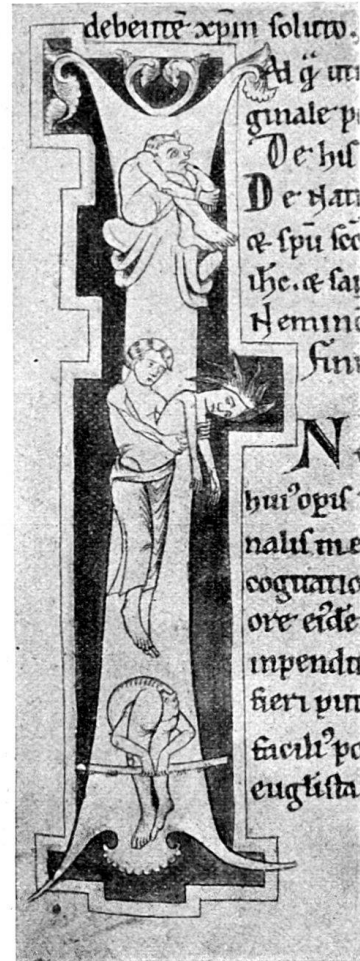 debentē xp̄m soluto.
Ad q̄ uti
ginale p
De his
De Nati
& spū scō
ihc. & sa
Nemin
fini
N
hui᷒ opis
nalis me
cogitatio
ore eidē
inpendi
fieri put
facili᷒ po
euglista